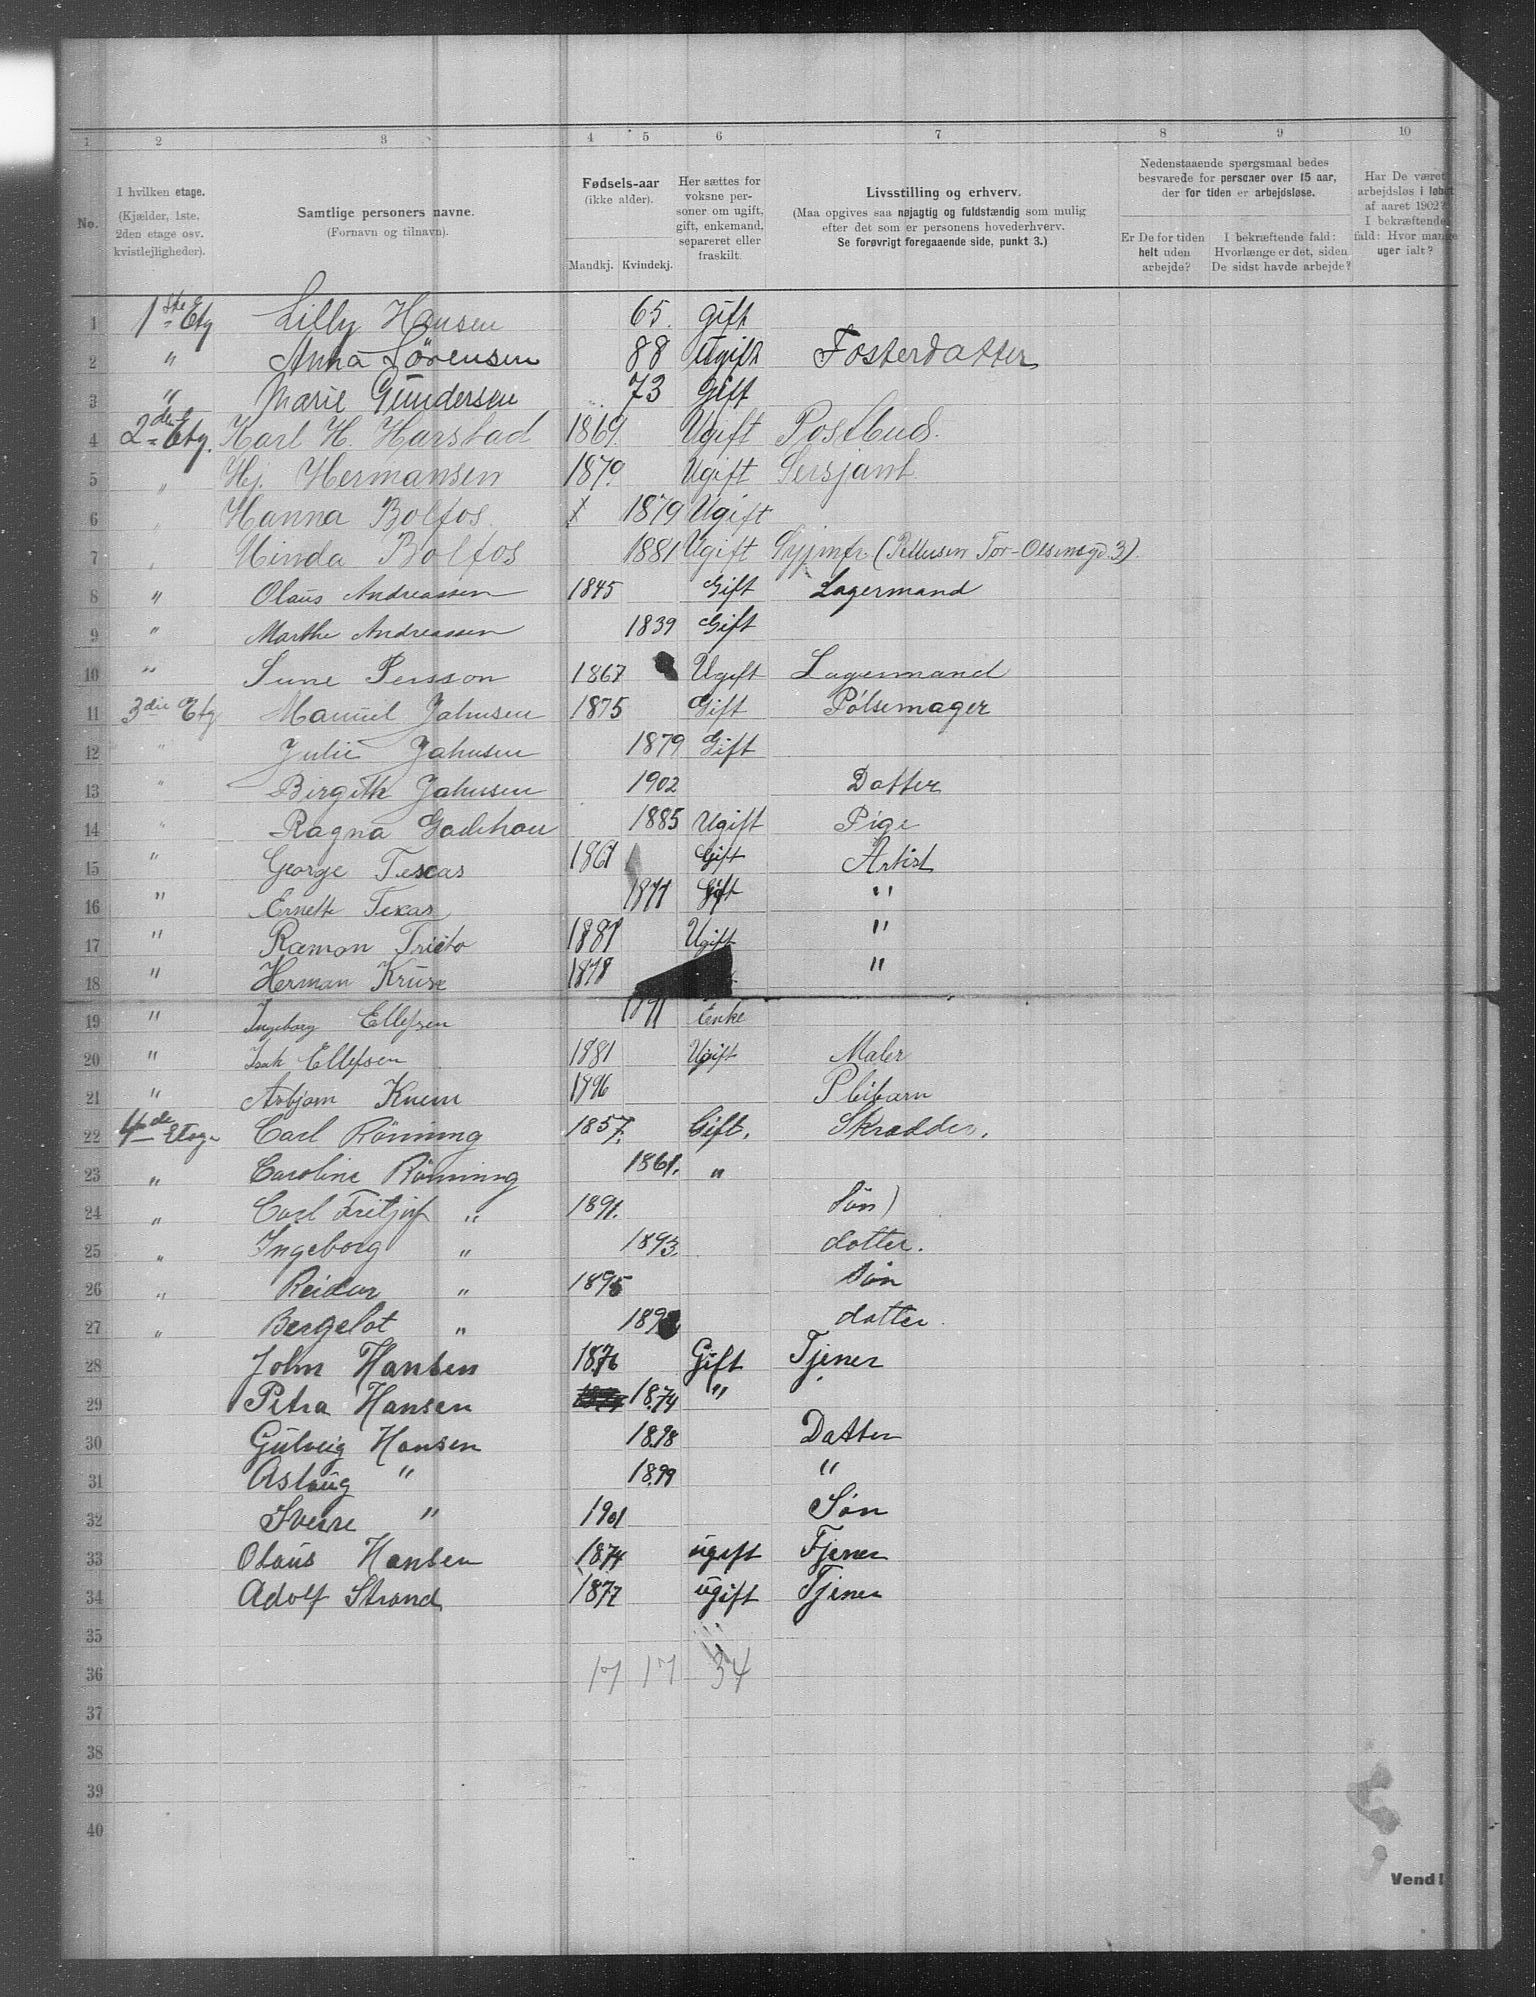 1 2 3 4 5 6 7 8 9 10
No.
I hvilken etage.
(Kjælder, 1ste,
2den etage osv.
kvistlejligheder).
Samtlige personers navne.
(Fornavn og tilnavn).
Fødsels-aar
(ikke alder).
Mandkj. Kvindekj.
Her sættes for
voksne per-
soner om ugift,
gift, enkemand,
separeret eller
fraskilt.
Livsstilling og erhverv.
(Maa opgives saa nøjagtig og fuldstændig som mulig
efter det som er personens hovederhverv.
Se forøvrigt foregaaende side, punkt 3.)
Nedenstaaende spørgsmaal bedes
besvarede for personer over 15 aar,
der for tiden er arbejdsløse.
Er De for tiden
helt uden
arbejde?
I bekræftende fald:
Hvorlænge er det, siden
De sidst havde arbejde?
Har De været
arbejdsløs i løbet
af aaret 1902?
I bekræftende
fald: Hvor mange
uger ialt?
1 1ste Etg Lilly Hansen 65. gift
2 " Anna Sörensen 88 Ugift Fosterdatter
3 " Marie Gundersen 73 Gift
4 2den Etg. Karl H. Harstad 1869. Ugift Postbud.
5 " Hj. Hermansen 1879. Ugift Sersjant.
6 " Hanna Bolfos. X 1879 Ugift
7 " Minda Bolfos 1881 Ugift Syjmfr. (Pettersen Tor-Olsensgd. 3).
8 " Olaus Andreassen 1845 Gift Lagermand
9 " Marthe Andreassen 1839 Gift
10 " Sune Persson 1867 Ugift Lagermand
11 3die Etg Manuel Jahnsen 1875 Gift Pölsemager
12 " Julie Jahnsen 1879 Gift
13 " Birgith Jahnsen 1902 Datter
14 " Ragna 1885 Ugift Pige
15 " George Texas 1861 Gift Artist
16 " Ernette Texas 1877 Gift "
17 " Ramon 1881 Ugift "
18 " Herman Kruse 1878 "
19 " Ingeborg Ellefsen Enke
20 " Isak Ellefsen 1881 Ugift Maler
21 " Asbjørn 1896 Pleibarn
22 4de Etage Carl Rönning 1857. Gift. Skrædder.
23 " Caroline Rönning 1861. "
24 " Carl Fritjof " 1891. Sön)
25 " Ingeborg " 1893. datter.
26 " Reidar " 1895 Sön
27 " Bergelot " datter.
28 John Hansen 1876 Gift Tjener
29 Petra Hansen 1874 "
30 Gulveig Hansen 1898 Datter
31 Aslaug " 1899 "
32 Sverre " 1901 Sön
33 Olaus Hansen 1874 ugift Tjener
34 Adolf Strand 1877 ugift Tjener
35
36 17 17 34
37
38
39
40
Vend!